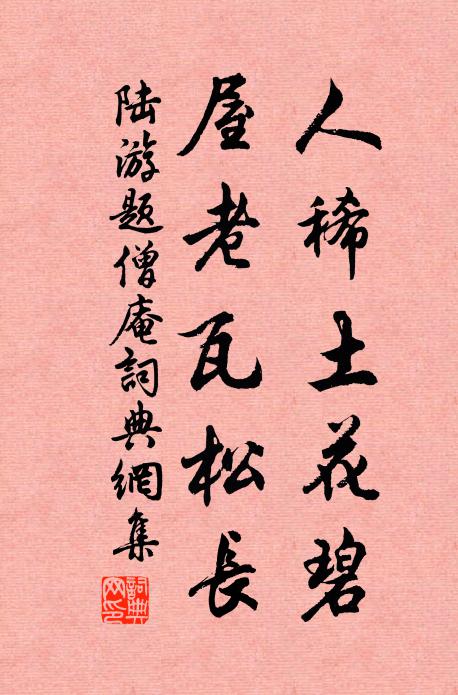 人稀土花碧
屋老瓦松長
陸游題僧庵詞典網集
詞典網印